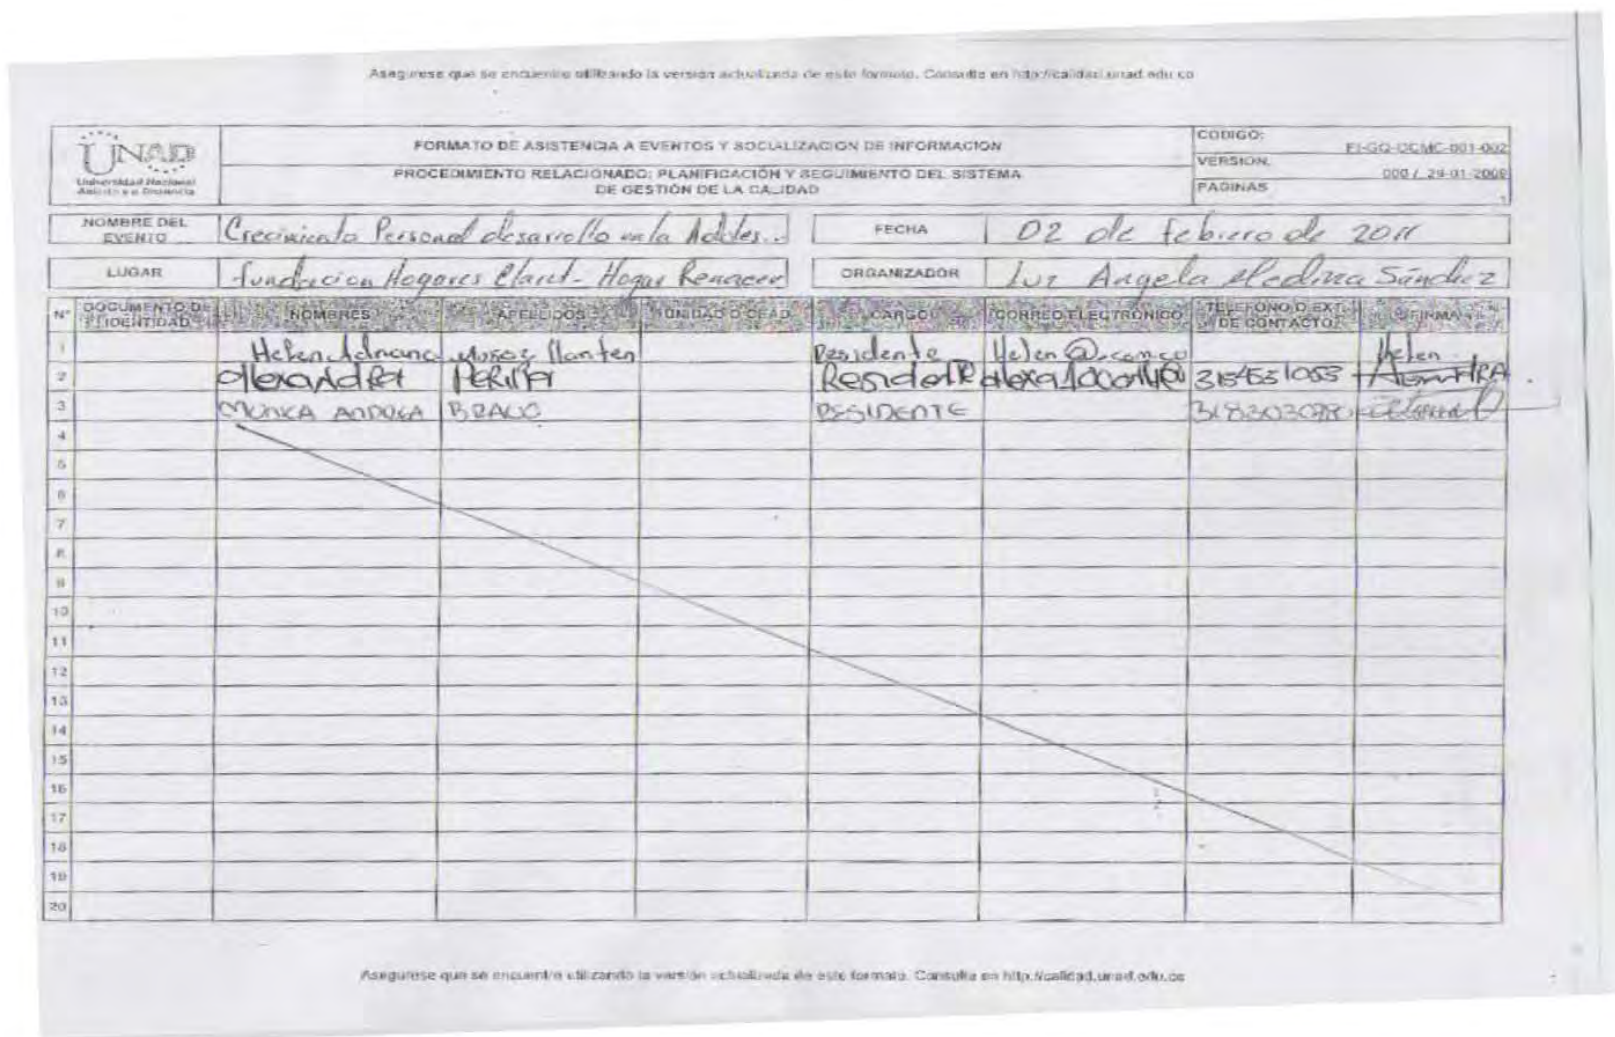 Asegurese que se encuentre utilizando la versión actualizada de este formato. Consulte en http://calidad.unad.edu.co
UNAD
Universidad Nacional
Abierta y a Distancia
FORMATO DE ASISTENCIA A EVENTOS Y SOCIALIZACION DE INFORMACION
PROCEDIMIENTO RELACIONADO: PLANIFICACIÓN Y SEGUIMIENTO DEL SISTEMA
DE GESTIÓN DE LA CALIDAD
CODIGO:
FI-GQ-OCMC-001-002
VERSION.
000 / 29-01-2009
PAGINAS
1
NOMBRE DEL EVENTO Crecimiento Personal desarrollo en la Adoles... FECHA 02 de febrero de 2011
LUGAR fundacion Hogares Claret - Hogar Renacer ORGANIZADOR Luz Angela Medina Sánchez
N° DOCUMENTO DE IDENTIDAD NOMBRES APELLIDOS UNIDAD O CEAD CARGO CORREO ELECTRÓNICO TELEFONO O EXT. DE CONTACTO FIRMA
1 Helen Adriana Residente Helen
2 Alexandra PERILLA Residente
3 MONICA ANDREA BRAVO RESIDENTE
4
5
6
7
8
9
10
11
12
13
14
15
16
17
18
19
20
Asegurese que se encuentre utilizando la versión actualizada de este formato. Consulte en http://calidad.unad.edu.co